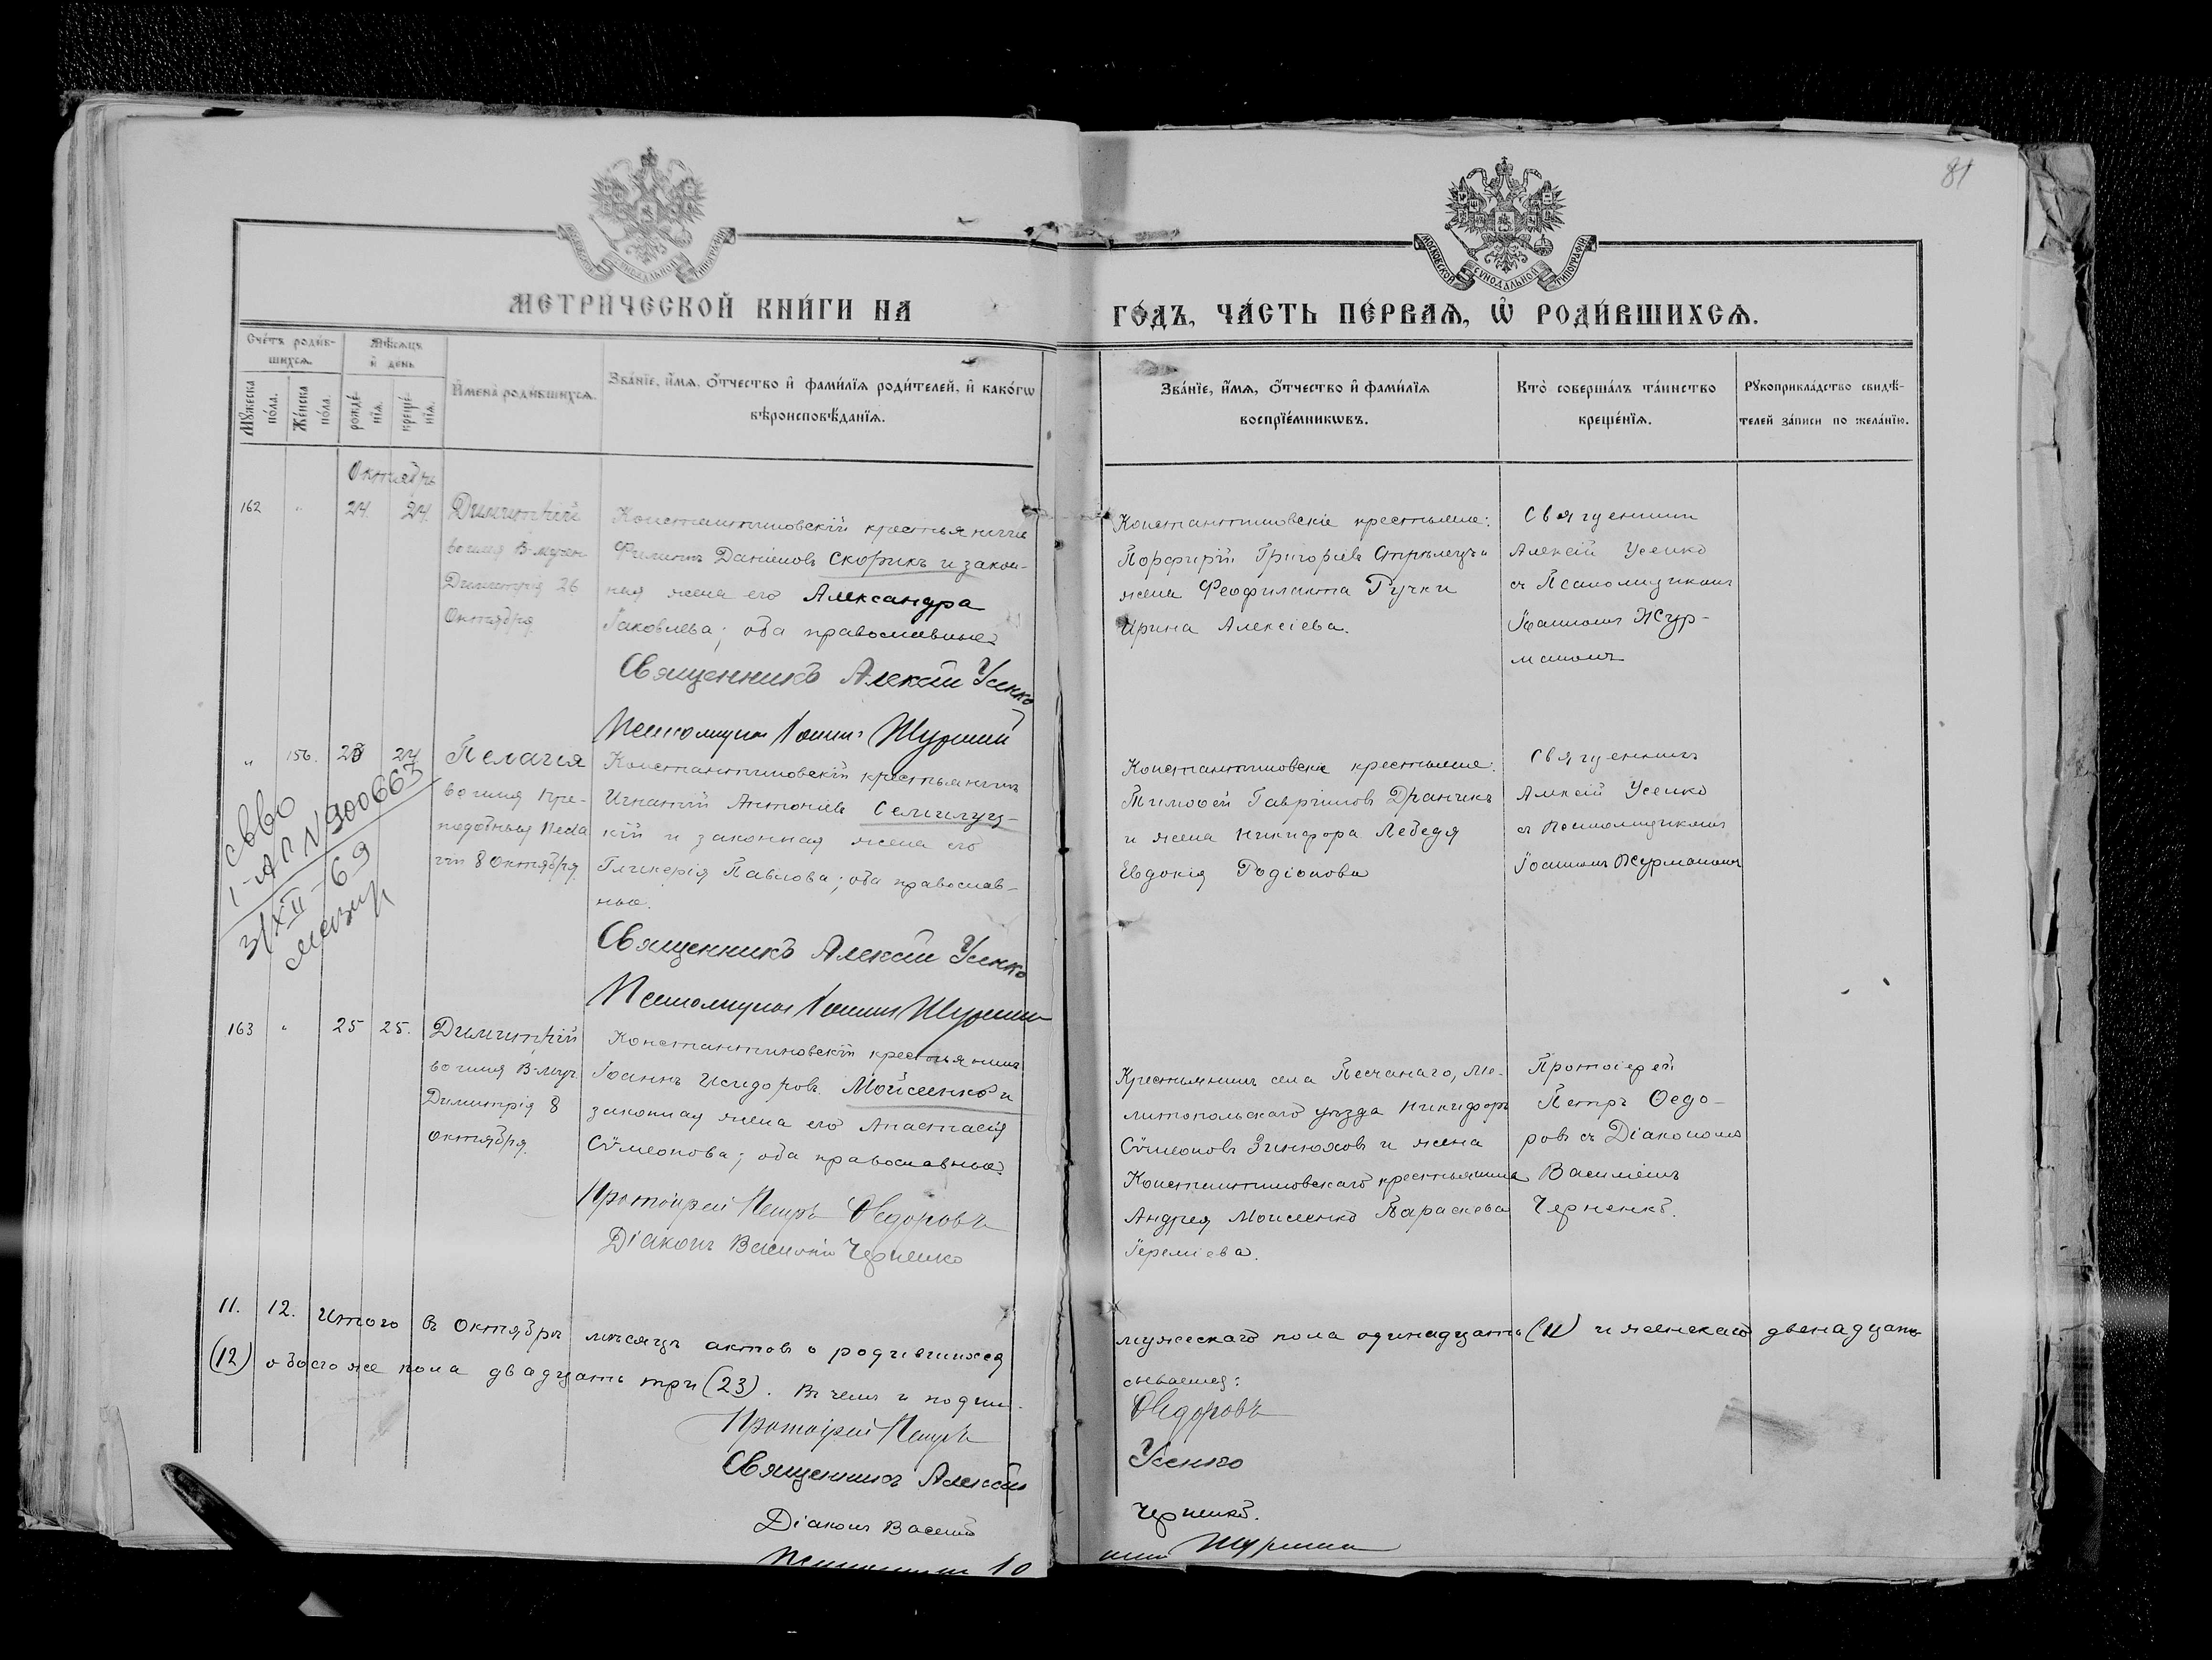 81
МОСКОВСКОЙ СѴНОДАЛЬНОЙ ТИПОГРАФІИ
МЕТРИ́ЧЕСКОЙ КНИ́ГИ НА
ГО́ДЪ, ЧА́СТЬ ПЕ́РВАѦ, Ѽ РОДИ́ВШИХСѦ.
Сче́тъ роди́в-
шихсѧ.
Мѣ́сѧцъ
и҆ день
Мꙋ́жеска
по́ла.
Же́нска
по́ла.
рожде́-
нїѧ.
креще́-
нїѧ.
И҆мена̀ роди́вшихсѧ.
Зва́нїе, и҆́мѧ, ѻ҆́тчество и҆ фами́лїѧ роди́телей, и҆ како́гѡ
вѣроисповѣ́данїѧ.
Зва́нїе, и҆́мѧ, ѻ҆́тчество и҆ фами́лїѧ
воспрїе́мникѡвъ.
Кто̀ соверша́лъ та́инство
креще́нїѧ.
Рꙋкоприкла́дство свидѣ́-
телей за́писи по жела́нїю.
Октябрь
162 " 24. 24.
Димитрій
во имя В-мучен
Димитрія 26
Октября
Константиновскій крестьянинъ
Филиппъ Даніиловъ Скорикъ и закон-
ная жена его Александра
Іаковлева; оба православные
Священникъ Алексій Усенко
Псаломщикъ Іоаннъ Журманъ
Константиновскіе крестьяне:
Порфирій Григорьевъ Стрѣлецъ и
жена Феофилакта Ручки
Ирина Алексіева.
Священникъ
Алексій Усенко
съ Псаломщикомъ
Іоанномъ Жур-
маномъ
" 156. 23 24
Пелагія
во имя Пре-
подобныя Пела
гіи 8 Октября.
Константиновскій крестьянинъ
Игнатій Антоніевъ Семилуц-
кій и законная жена его
Гликерія Павлова; оба православ-
ные.
Священникъ Алексій Усенко
Псаломщикъ Іоаннъ Журманъ
Константиновскіе крестьяне:
Тимофей Гавріиловъ Драникъ
и жена Никифора Лебедя
Евдокія Родіонова
Священникъ
Алексій Усенко
съ Псаломщикомъ
Іоанномъ Журманомъ
свво
I-АП N900663
3/XII-69
163 " 25 25.
Димитрій
во имя В-муч.
Димитрія 8
Октября.
Константиновскій крестьянинъ
Іоаннъ Исидоровъ Мойсеенко и
законная жена его Анастасія
Сѵмеонова; оба православные.
Протоіерей Петръ Ѳедоровъ
Діаконъ Василій Черненко
Крестьянинъ села Песчанаго, Ме-
литопольскаго уѣзда Никифоръ
Сѵмеоновъ Зинюховъ и жена
Константиновскаго крестьянина
Андрея Моисеенко Параскева
Іереміева.
Протоіерей
Петръ Ѳедо-
ровъ съ Діакономъ
Василіемъ
Черненко.
11. 12. Итого въ Октябрѣ мѣсяцѣ актовъ о родившихся мужескаго пола одинадцать (11) и женскаго двенадцать
(12) обоего же пола двадцать три (23). Въ чемъ и подпи-
сываемся:
Протоіерей Петръ Ѳедоровъ
Священникъ Алексій Усенко
Діаконъ Василій Черненко.